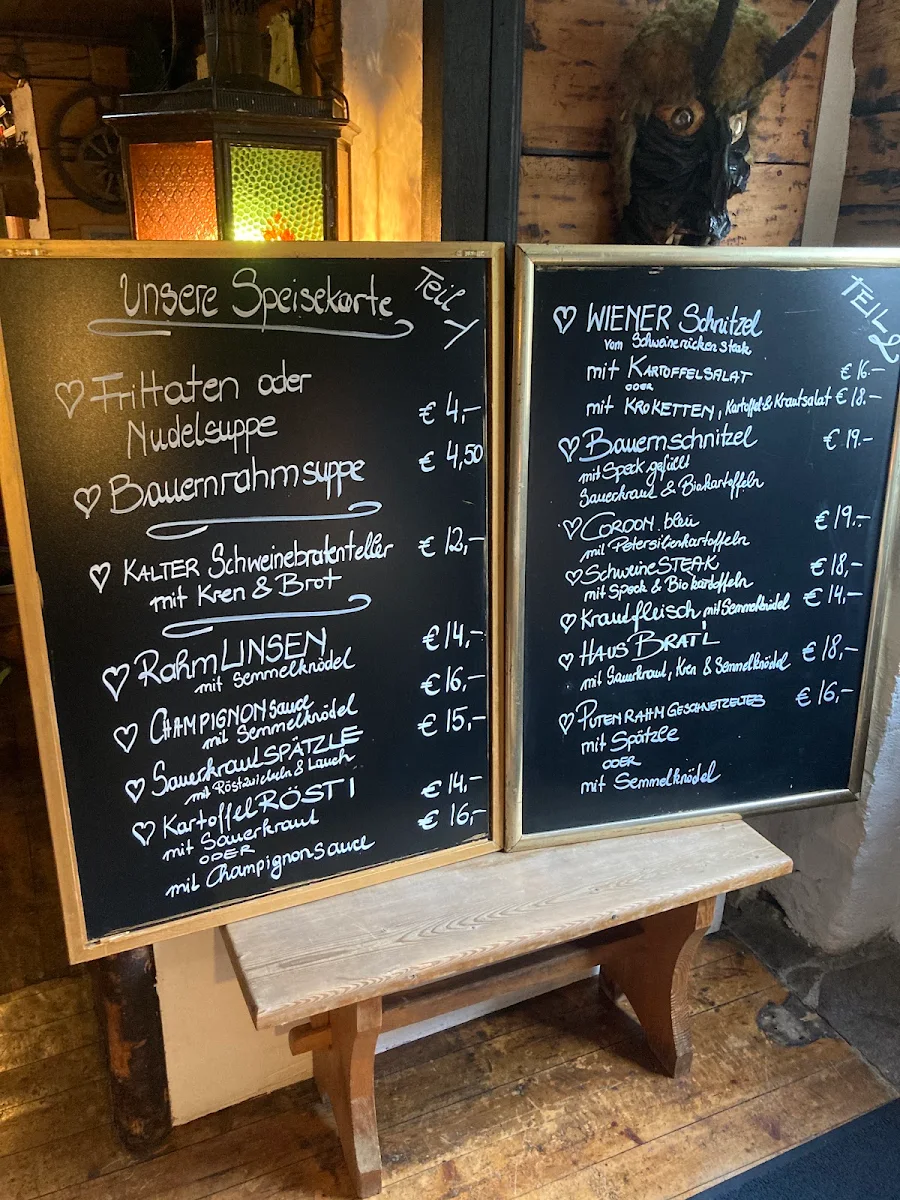 Unsere Speisekarte
Teil 1
Frittaten oder
Nudelsuppe € 4,-
Bauernrahmsuppe € 4,50
KALTER Schweinebratenteller € 12,-
mit Kren & Brot
RahmLINSEN € 14,-
mit Semmelknödel
CHAMPIGNONsauce € 16,-
mit Semmelknödel
SauerkrautSPÄTZLE € 15,-
mit Röstzwiebeln & Lauch
KartoffelRÖSTI
mit Sauerkraut € 14,-
ODER
mit Champignonsauce € 16,-
TEIL 2
WIENER Schnitzel
vom Schweinerücken steak
mit KARTOFFELSALAT € 16.-
ODER
mit KROKETTEN, Kartoffel & Krautsalat € 18.-
Bauernschnitzel € 19.-
mit Speck gefüllt
Sauerkraut & Biokartoffeln
CORDON bleu € 19.-
mit Petersilienkartoffeln
SchweineSTEAK € 18,-
mit Speck & Biokartoffeln
Krautfleisch mit Semmelknödel € 14,-
HAUS BRATL € 18,-
mit Sauerkraut, Kren & Semmelknödel
PUTENRAHMGESCHNETZELTES € 16,-
mit Spätzle
ODER
mit Semmelknödel